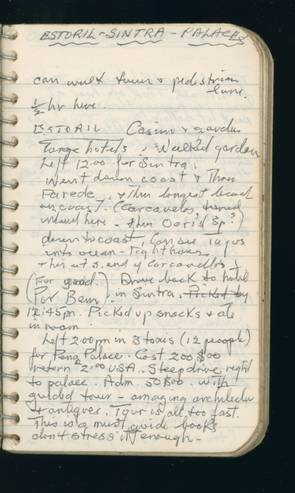 ESTORIL-SINTRA-PALACES
can walk town & pedestrian
lane.
1/2 hr here.
ESTORIL Casino & gardens
large hotels, walked garden
Left 12.00 for Sintra.
Went down coast & thru
Parede & thru longest beach
on coast (Carcavelos) turned
inland here - thru (sp?)
down to coast. Can see
into ocean -
This at s. end of Carcavelos
(For good) Drove back to hotel
(For Bem) in Sintra. Picked up
12:45pm. Picked up snacks & ate
in room
Left 2.00pm in 3 taxis (12 people)
for Pena Palace. Cost 200$00
return 2.00 USA. Steep drive right
to palace. Adm. 50$00. with
guided tour - amazing architectur
& antiques. Tour is all too fast.
This is a must guide books
dont stress it enough -